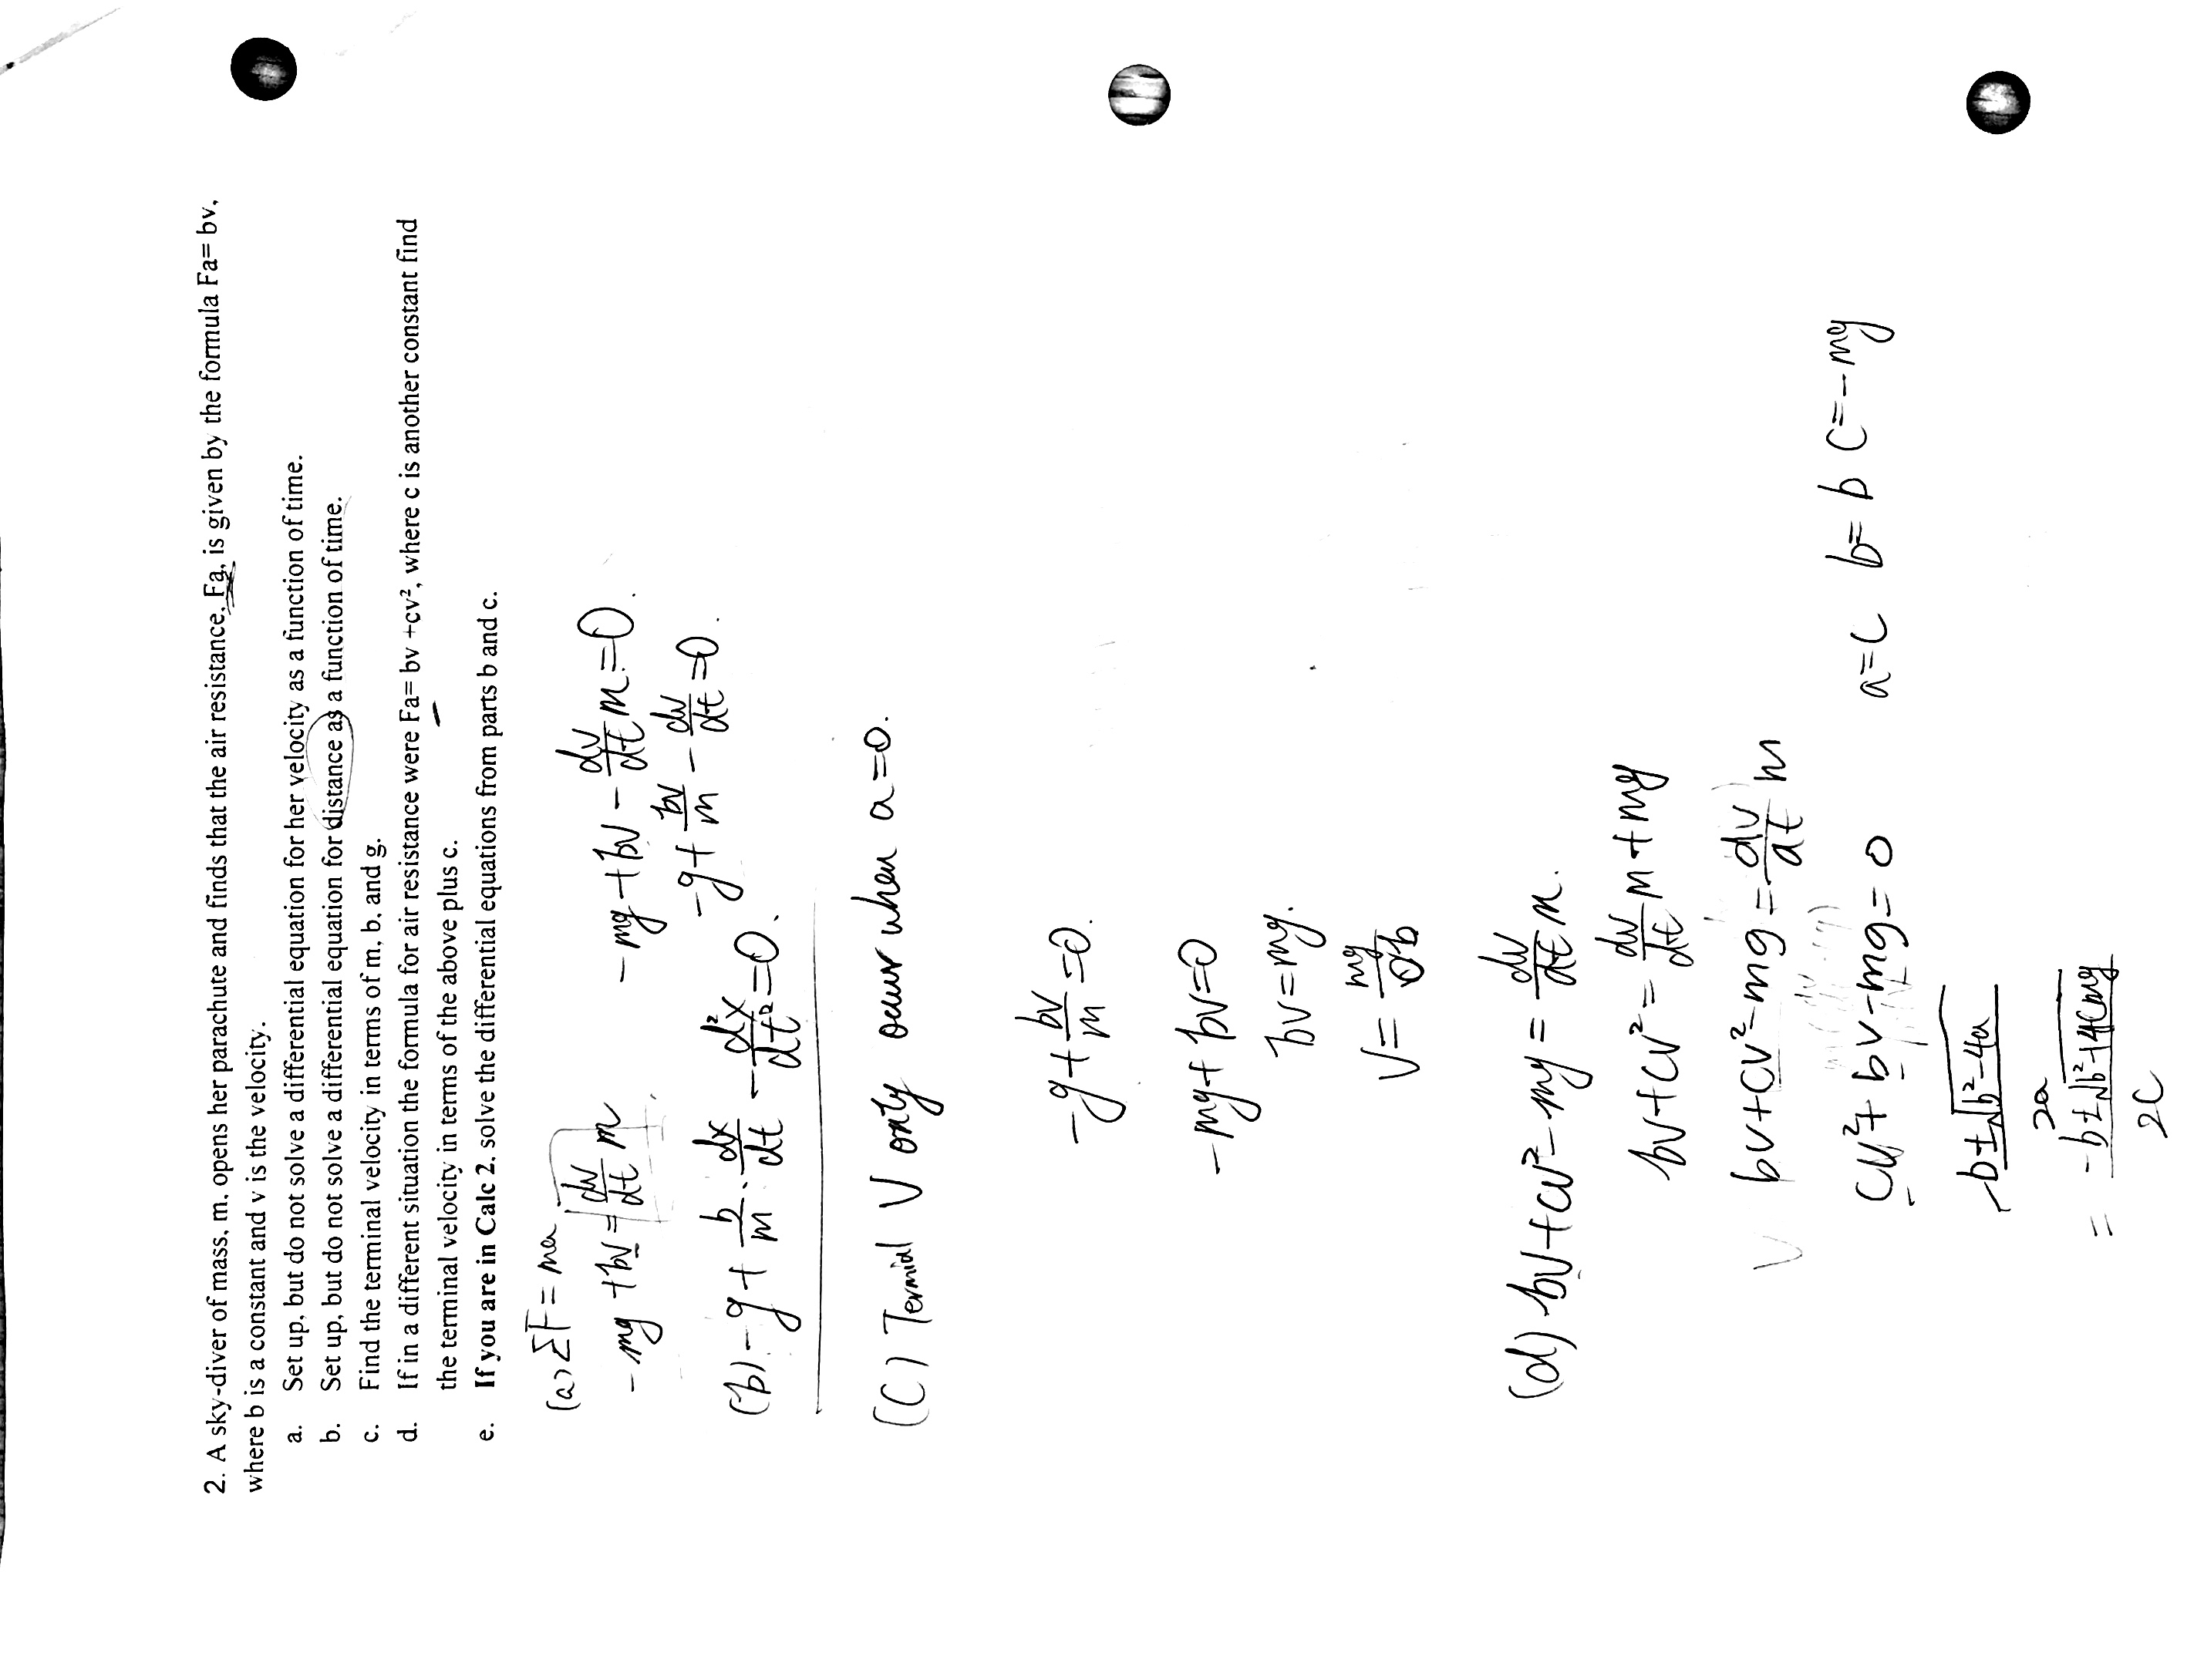 2. A sky-diver of mass, m, opens her parachute and finds that the air resistance, Fa, is given by the formula Fa= bv,
where b is a constant and v is the velocity.
a. Set up, but do not solve a differential equation for her velocity as a function of time.
b. Set up, but do not solve a differential equation for distance as a function of time.
c. Find the terminal velocity in terms of m, b, and g.
d. If in a different situation the formula for air resistance were Fa= bv +cv², where c is another constant find
the terminal velocity in terms of the above plus c.
e. If you are in Calc 2, solve the differential equations from parts b and c.
(a) ΣF = ma
-mg + bv = dv/dt m
-mg + bv - dv/dt m = 0.
-g + bv/m - dv/dt = 0.
(b) -g + b/m · dx/dt - d²x/dt² = 0.
(C) Termial V only occur when a=0.
-g + bv/m = 0.
-mg + bv = 0
bv = mg.
V = mg/b
(d) bv + cv² - mg = dv/dt m.
bv + cv² = dv/dt m + mg
bv + cv² - mg = dv/dt m
cv² + bv - mg = 0 a=c b=b C=-mg
-b ± √b²-4a / 2a
= -b ± √b²+4cmg / 2C